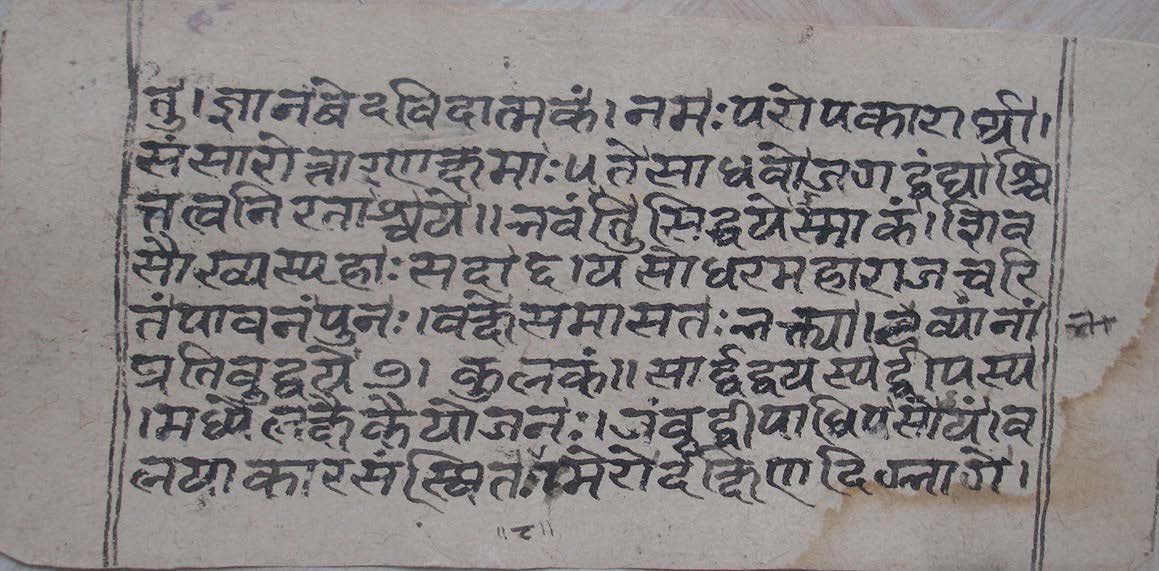 तु। ज्ञानवेदविदात्मकं। नमः परोपकारार्थी।
संसारोत्तारणक्षमाः ५ ते साधवो जगद्वंद्याश्चि
त्तत्वनिरताश्च ये॥ भवंतु सिद्धयेस्माकं। शिव
सौख्यस्पृहाः सदा ६। यसोधरमहाराजचरि
तं पावनं पुनः। वक्ष्ये समासतः भक्त्या। भव्यानां
प्रतिबुद्धये ७। कुलकं॥ सार्द्धद्वयस्य द्वीपस्य
। मध्ये लक्षैकैयोजनः। जंबुद्वीपाधिपसोयं। व
लयाकारसंस्थितः। मेरोर्दक्षिणदिग्भागे।
॥८॥